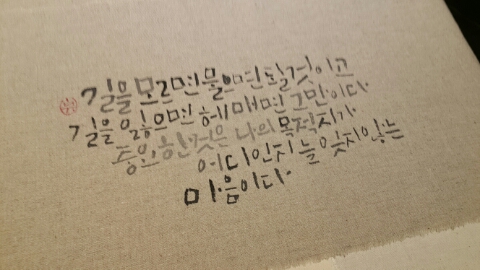 길을 모르면 물으면 될것이고
길을 잃으면 헤매면 그만이다
중요한것은 나의 목적지가
어디인지 늘 잊지않는
마음이다